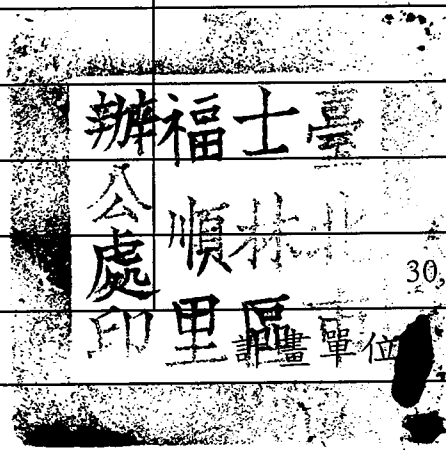 臺北市
士林區
福順里
辦公處印
30,
計畫單位